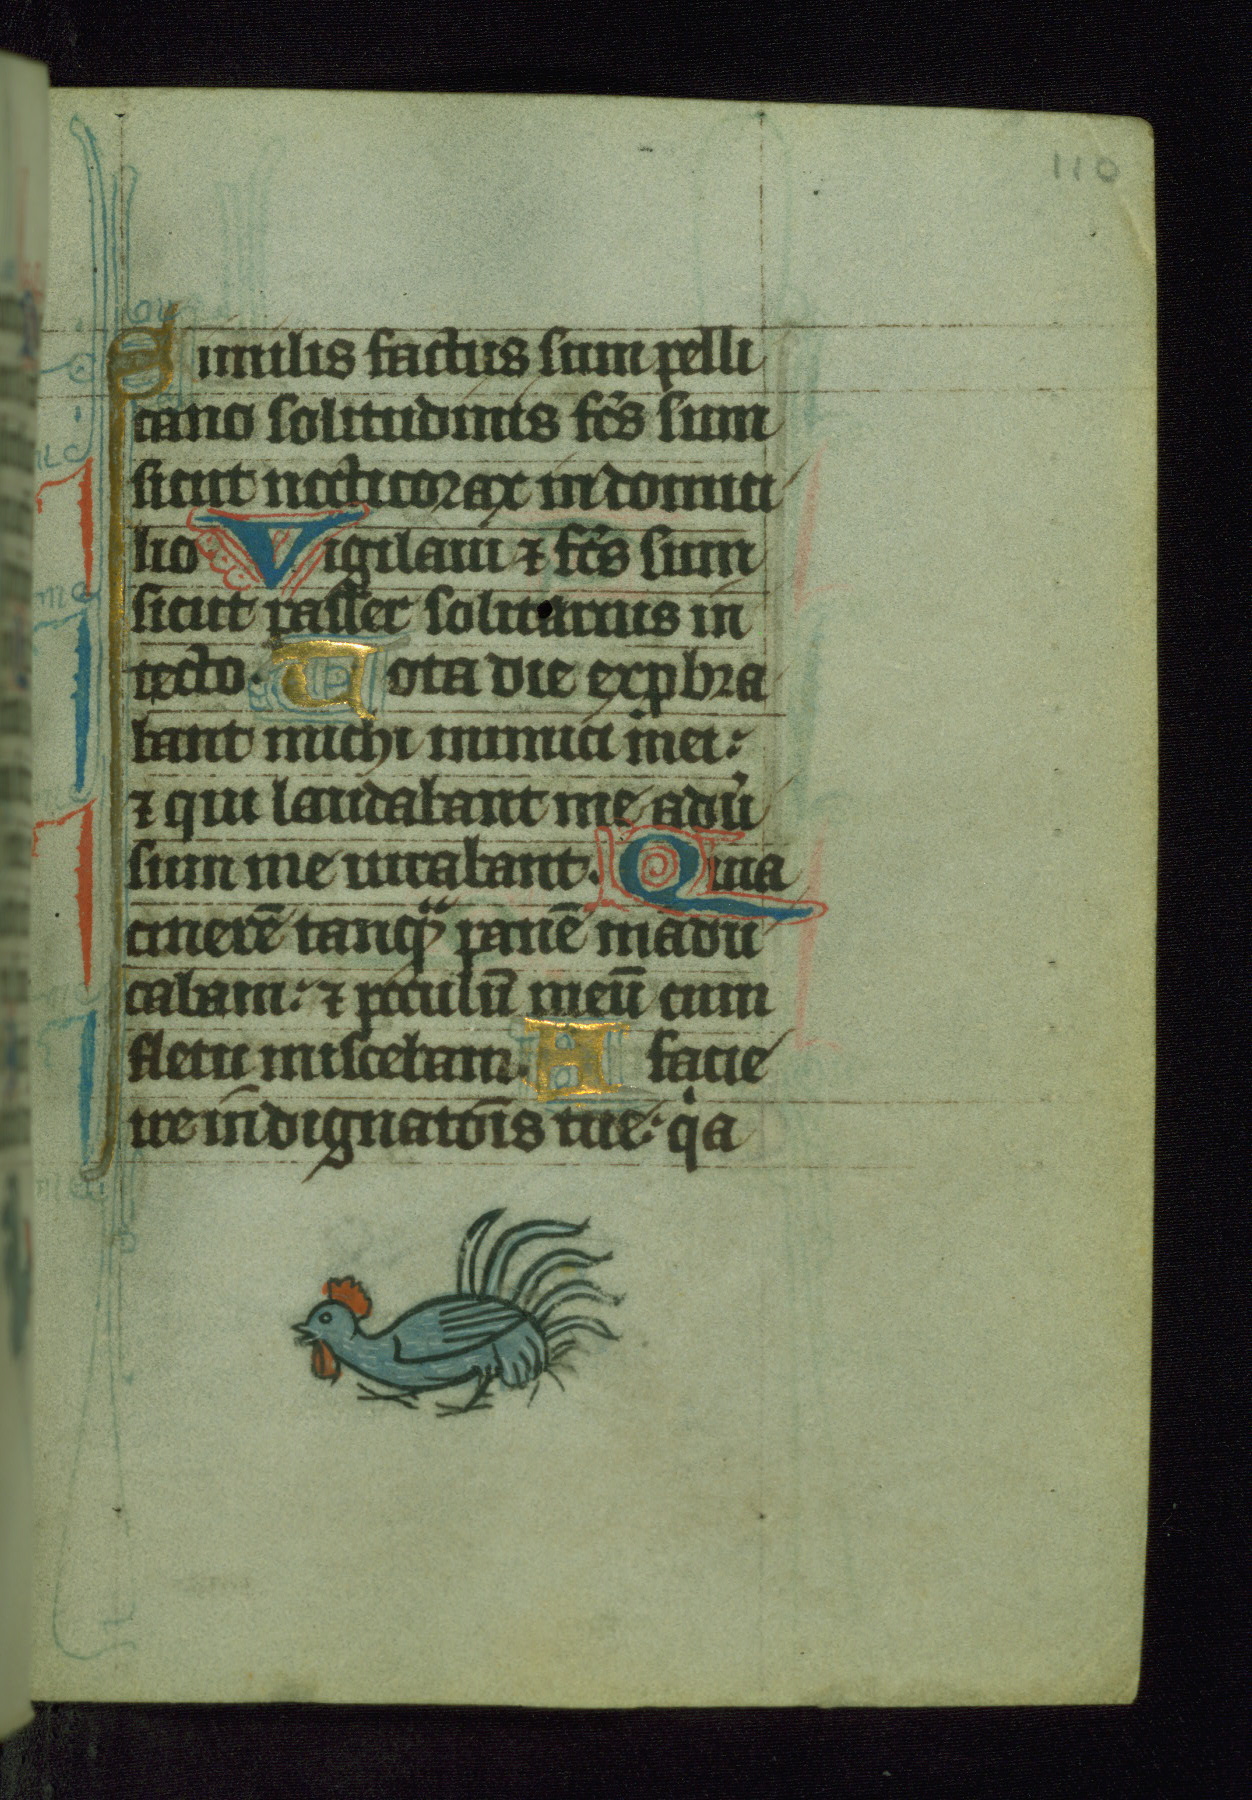 110
Similis factus sum pelli
cano solitudinis fcs sum
sicut necticorax in domici
lio Vigilaui ⁊ fcs sum
sicut passer solitarius in
tecto. Tota die exprobra
bant michi inimici mei:
⁊ qui laudabant me aduer
sum me iurabant. Quia
cinerē tanqͣ panē mādu
cabam: ⁊ poculū meū cum
fletu miscebam. A facie
ire indignatōis tue: qͥa